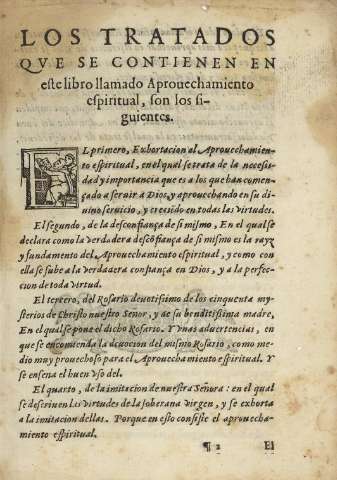 LOS TRATADOS
QVE SE CONTIENEN EN
este libro llamado Aprouechamiento
espiritual, son los si-
guientes.
EL primero, Exhortacion al Aprouechamien-
to espiritual, en el qual se trata de la necessi-
dad y importancia que es a los que han comen-
çado a seruir a Dios, yr aprouechando en su di-
uino seruicio, y creciēdo en todas las virtudes.
El segundo, de la desconfiança de si mismo, En el qual se
declara como la verdadera descōfiança de si mismo es la rayz
y fundamento del Aprouechamiento espiritual, y como con
ella se sube a la verdadera confiança en Dios, y a la perfec-
cion de toda virtud.
El tercero, del Rosario deuotissimo de los cinquenta my-
sterios de Christo nuestro Señor, y de su benditissima madre,
En el qual se pone el dicho Rosario. Y vnas aduertencias, en
que se encomienda la deuocion del mismo Rosario, como me-
dio muy prouechoso para el Aprouechamiento espiritual. Y
se enseña el buen vso del.
El quarto, de la imitacion de nuestra Señora: en el qual
se descriuen las virtudes de la soberana virgen, y se exhorta
a la imitacion dellas. Porque en esto consiste el aprouecha-
miento espiritual.
¶ 2 El